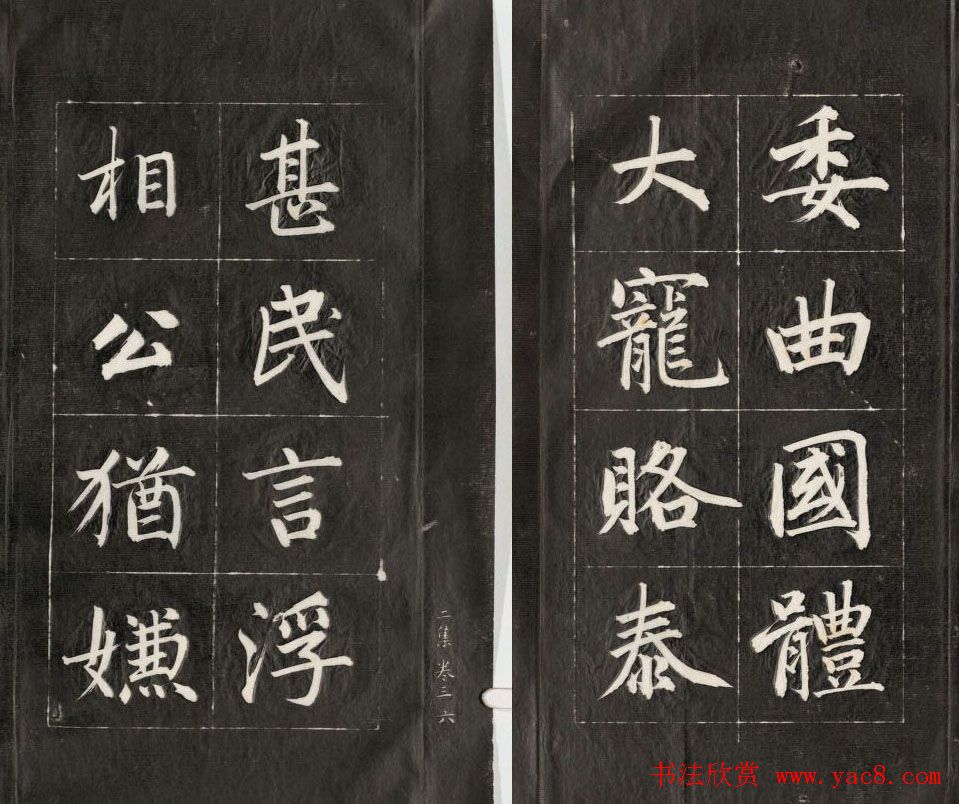 委曲國體
大寵賂泰
甚民言浮
相公猶嫌
二集 卷三 六
书法欣赏 www.yac8.com